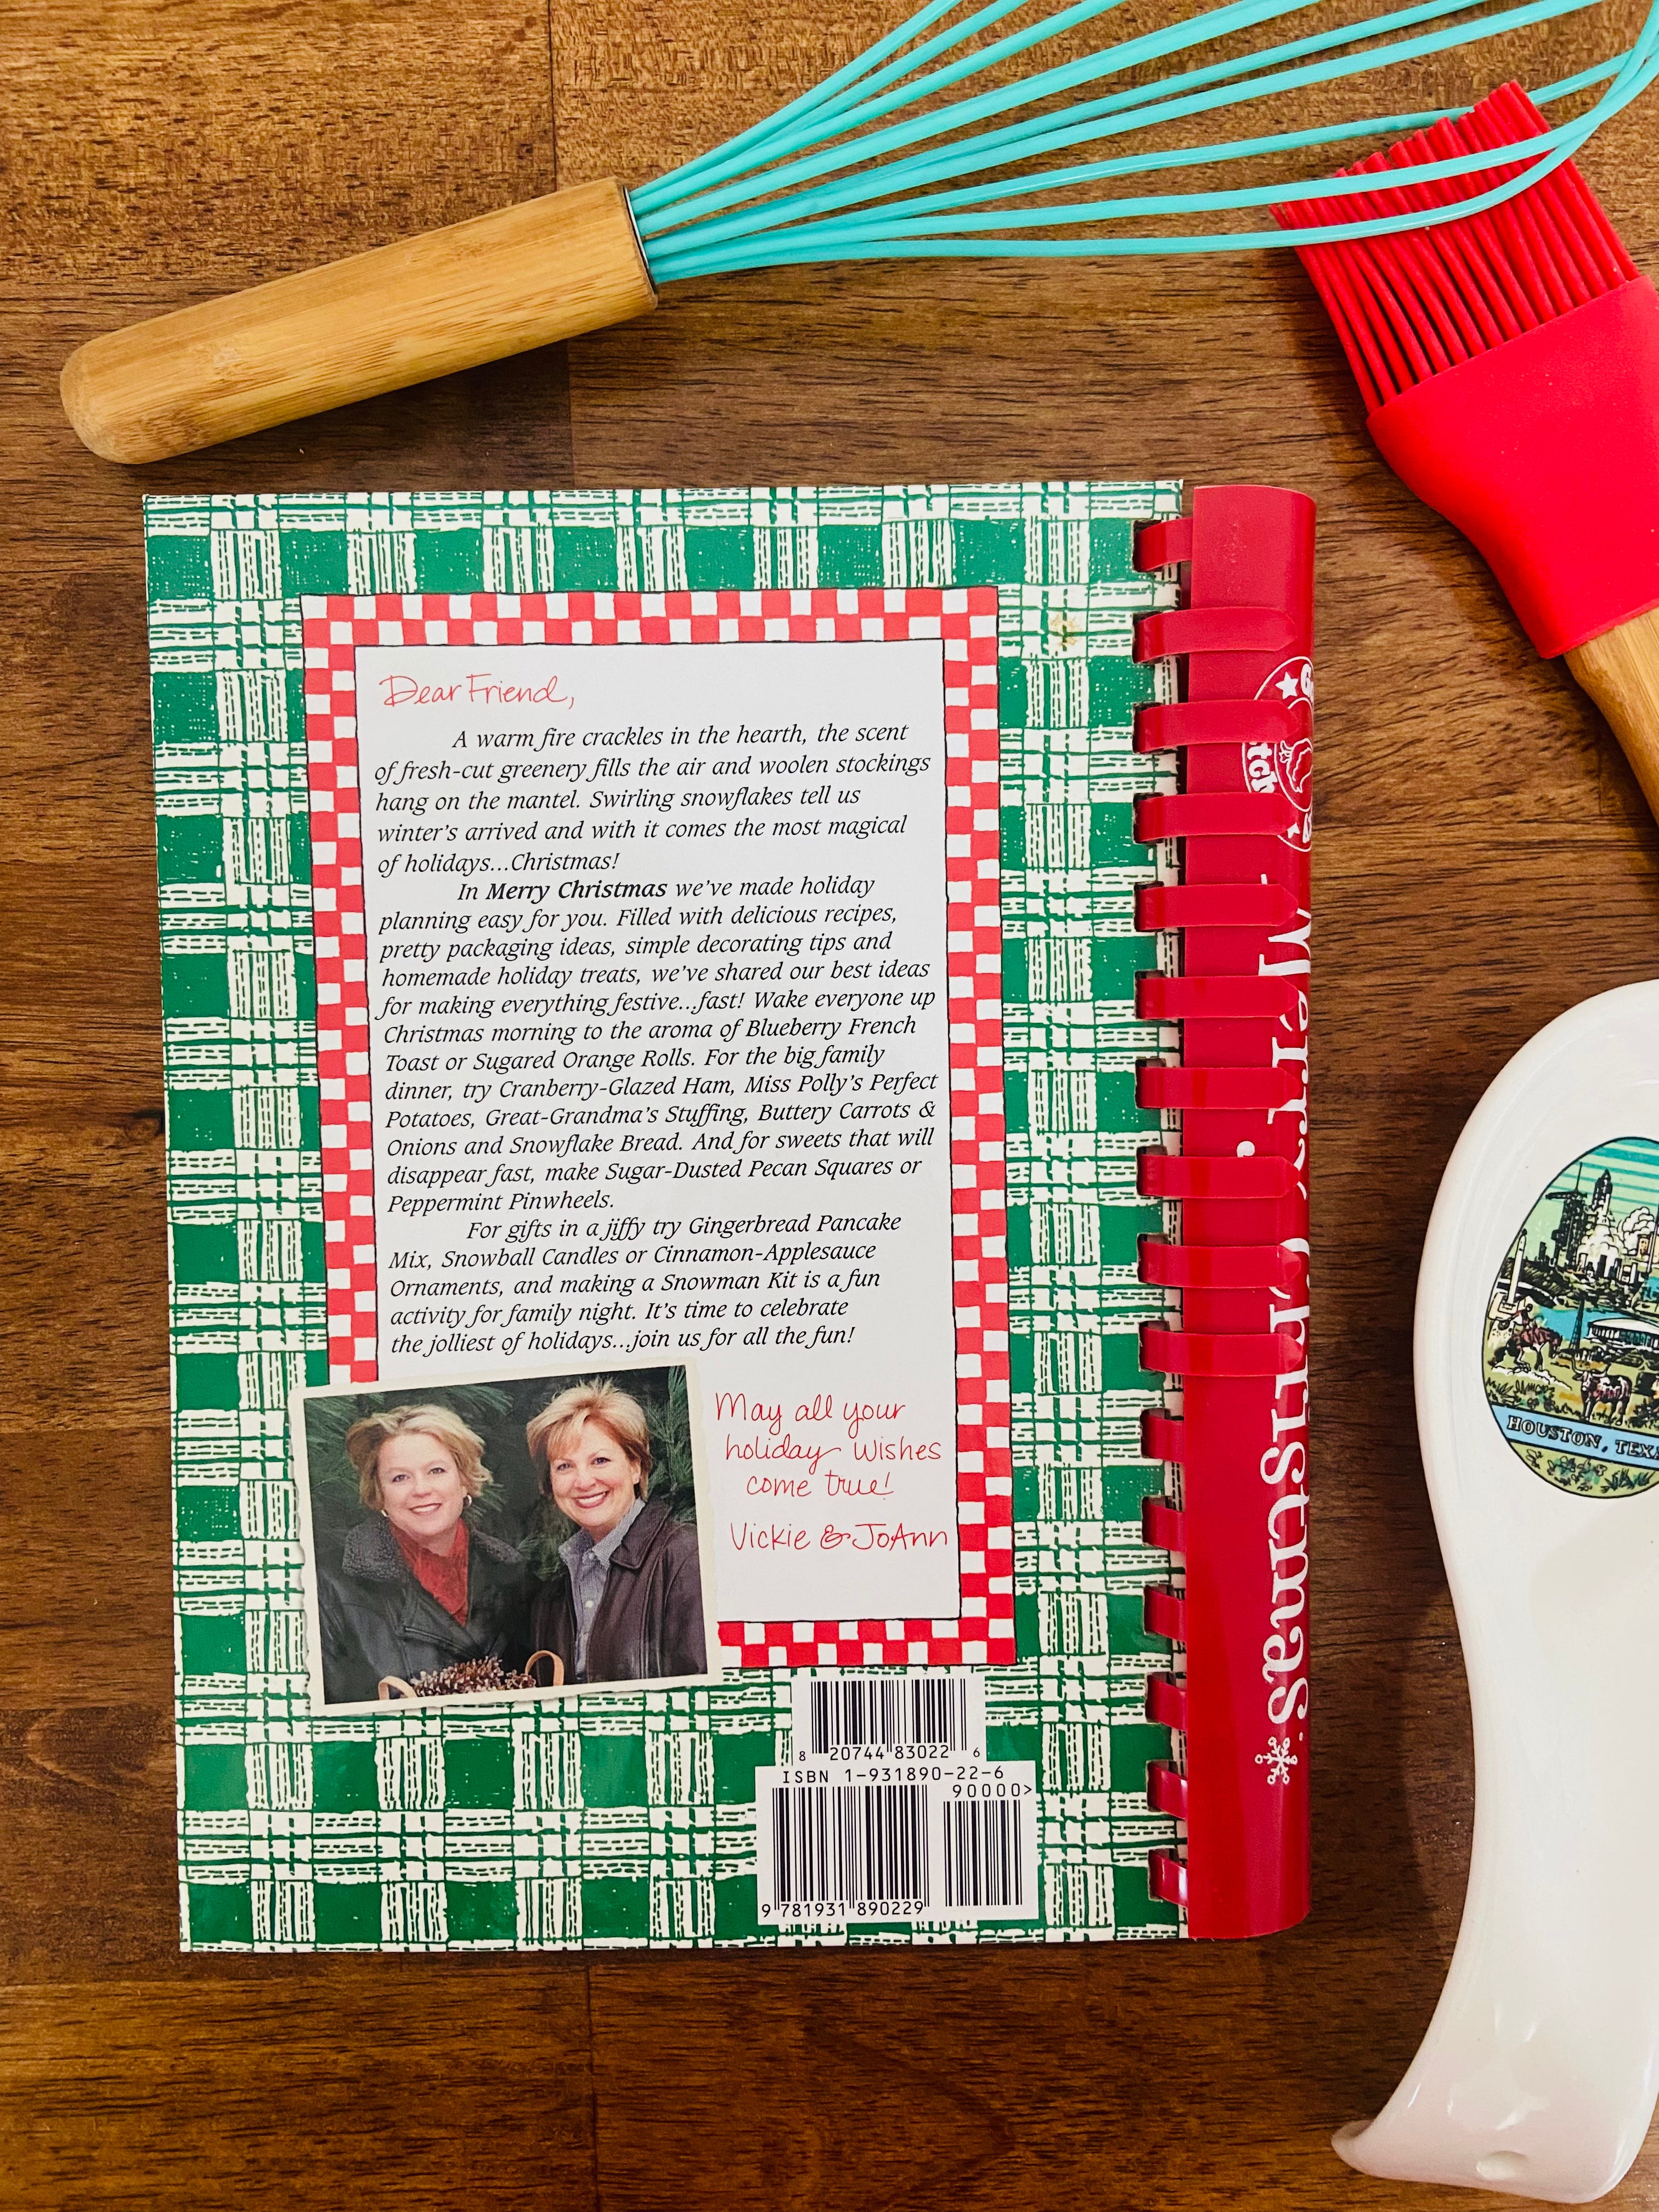 Dear Friend,
A warm fire crackles in the hearth, the scent
of fresh-cut greenery fills the air and woolen stockings
hang on the mantel. Swirling snowflakes tell us
winter's arrived and with it comes the most magical
of holidays...Christmas!
In Merry Christmas we've made holiday
planning easy for you. Filled with delicious recipes,
pretty packaging ideas, simple decorating tips and
homemade holiday treats, we've shared our best ideas
for making everything festive...fast! Wake everyone up
Christmas morning to the aroma of Blueberry French
Toast or Sugared Orange Rolls. For the big family
dinner, try Cranberry-Glazed Ham, Miss Polly's Perfect
Potatoes, Great-Grandma's Stuffing, Buttery Carrots &
Onions and Snowflake Bread. And for sweets that will
disappear fast, make Sugar-Dusted Pecan Squares or
Peppermint Pinwheels.
For gifts in a jiffy try Gingerbread Pancake
Mix, Snowball Candles or Cinnamon-Applesauce
Ornaments, and making a Snowman Kit is a fun
activity for family night. It's time to celebrate
the jolliest of holidays...join us for all the fun!
May all your
holiday wishes
come true!
Vickie & JoAnn
8 20744 83022 6
ISBN 1-931890-22-6
90000>
9 781931 890229
Merry Christmas
HOUSTON, TEXA